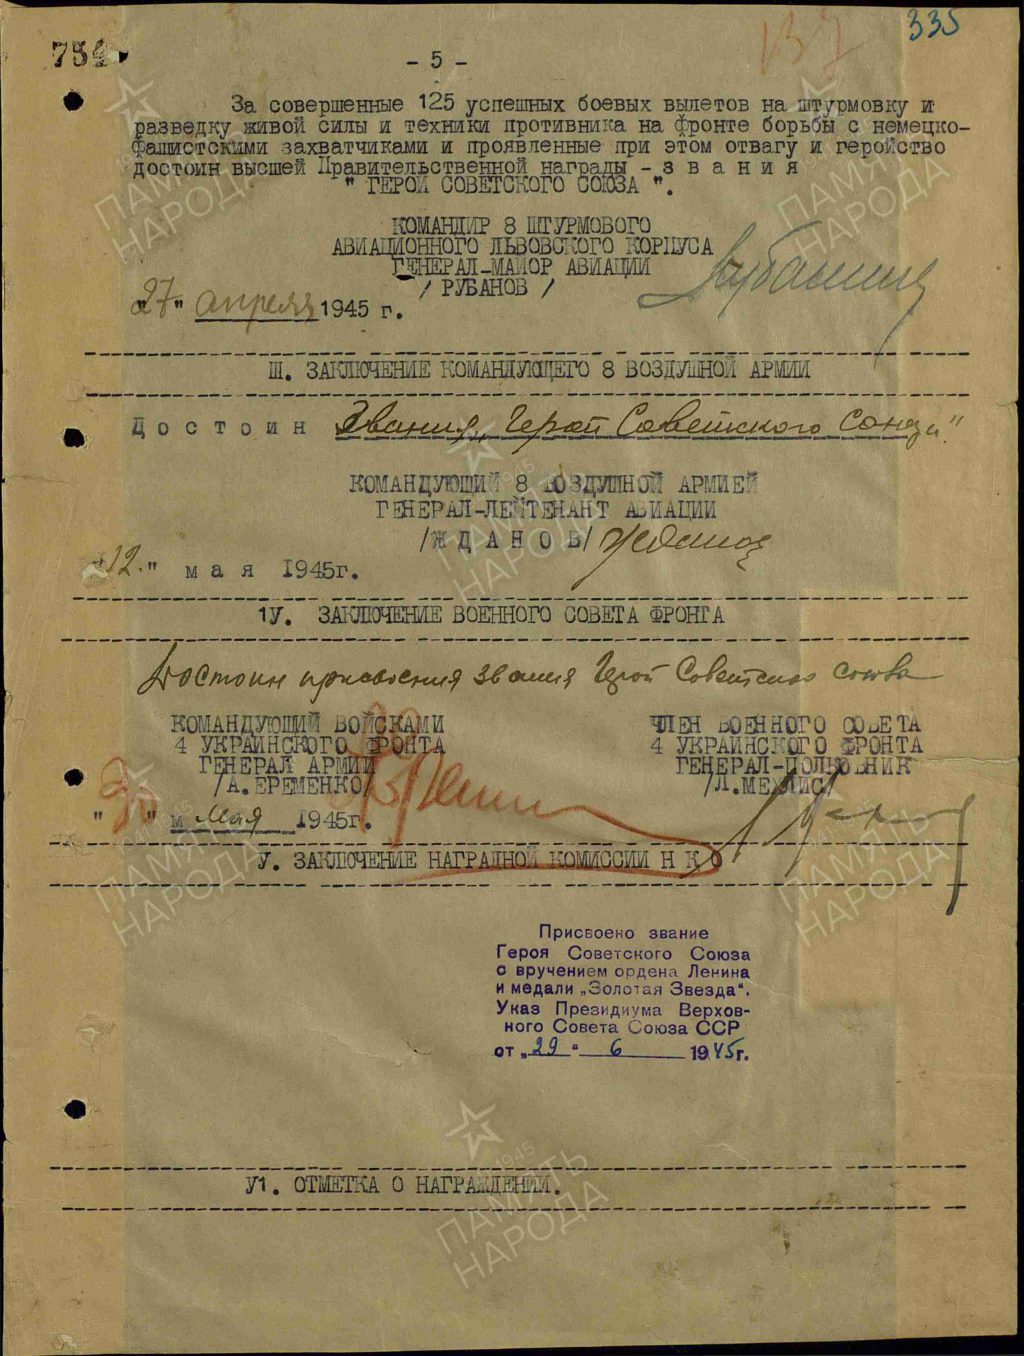 754
335
137
- 5 -
За совершенные 125 успешных боевых вылетов на штурмовку и
разведку живой силы и техники противника на фронте борьбы с немецко-
фашистскими захватчиками и проявленные при этом отвагу и геройство
достоин высшей Правительственной награды - з в а н и я
" ГЕРОЙ СОВЕТСКОГО СОЮЗА ".
КОМАНДИР 8 ШТУРМОВОГО
АВИАЦИОННОГО ЛЬВОВСКОГО КОРПУСА
ГЕНЕРАЛ-МАЙОР АВИАЦИИ
/ РУБАНОВ /
"27" апреля 1945 г.
Ш. ЗАКЛЮЧЕНИЕ КОМАНДУЮЩЕГО 8 ВОЗДУШНОЙ АРМИИ
Д о с т о и н звания „Герой Советского Союза".
КОМАНДУЮЩИЙ 8 ВОЗДУШНОЙ АРМИЕЙ
ГЕНЕРАЛ-ЛЕЙТЕНАНТ АВИАЦИИ
/Ж Д А Н О В/ Жданов
"12." м а я 1945г.
1У. ЗАКЛЮЧЕНИЕ ВОЕННОГО СОВЕТА ФРОНТА
Достоин присвоения звания Герой Советского Союза
КОМАНДУЮЩИЙ ВОЙСКАМИ
4 УКРАИНСКОГО ФРОНТА
ГЕНЕРАЛ АРМИИ
/А.ЕРЕМЕНКО/
ЧЛЕН ВОЕННОГО СОВЕТА
4 УКРАИНСКОГО ФРОНТА
ГЕНЕРАЛ-ПОЛКОВНИК
/Л.МЕХЛИС/
" " м мая 1945г.
У. ЗАКЛЮЧЕНИЕ НАГРАДНОЙ КОМИССИИ Н К О
Присвоено звание
Героя Советского Союза
с вручением ордена Ленина
и медали „Золотая Звезда".
Указ Президиума Верхов-
ного Совета Союза ССР
от „29" 6 1945г.
У1. ОТМЕТКА О НАГРАЖДЕНИИ.
ПАМЯТЬ
НАРОДА